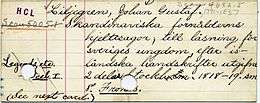 HCL
Liljegren, Johan Gustaf
Scan 5005.1
Skandinaviska fornålderns
hjeltesagor, till läsning för
Sveriges ungdom, efter is-
ländska handskrifter utgifne
2 delar. Stockholm. 1818-19. sm.
8°. Fronts.
(See next card)